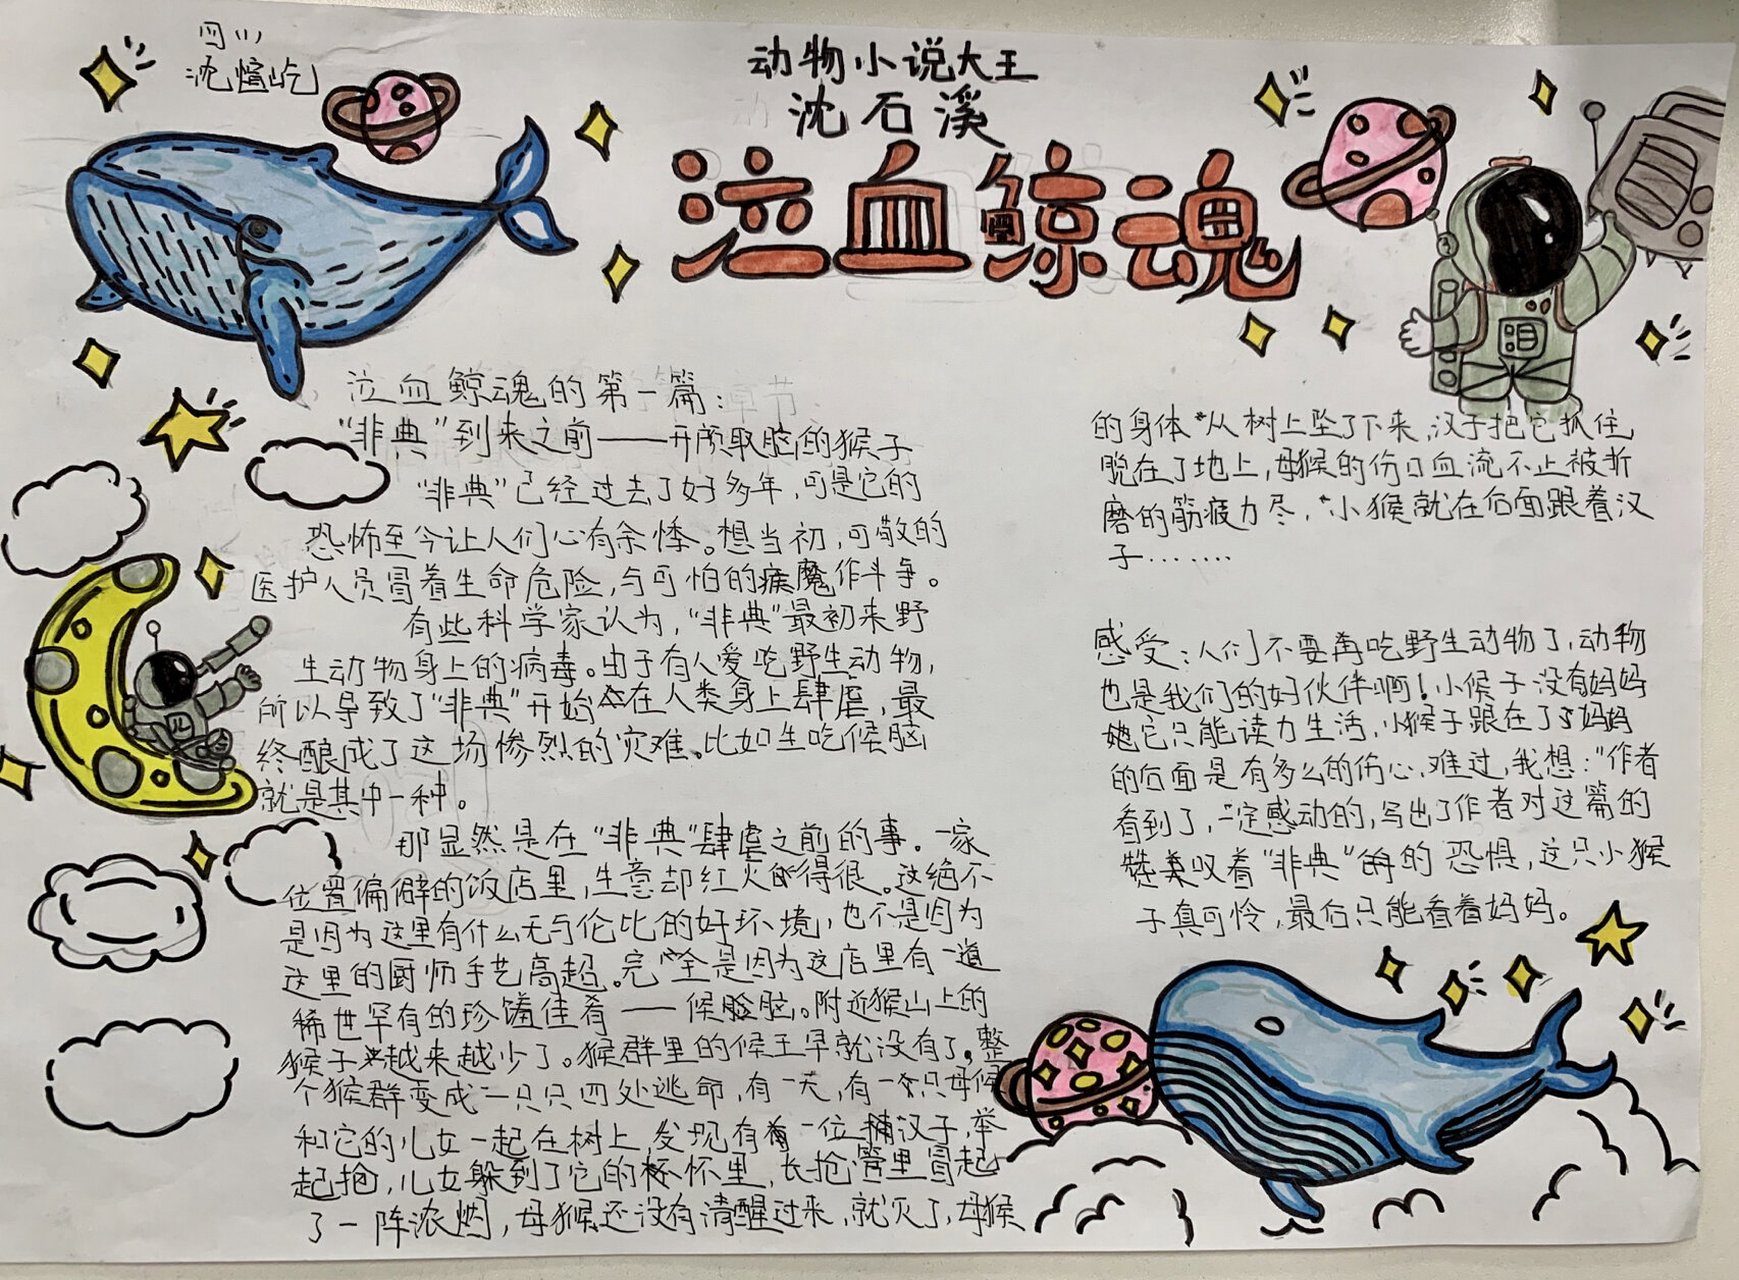 四川
沈煊屹
动物小说大王
沈石溪
泣血鲸魂
泣血鲸魂的第一篇：
“非典”到来之前——开颅取脑的猴子
“非典”已经过去了好多年，可是它的
恐怖至今让人们心有余悸。想当初，可敬的
医护人员冒着生命危险，与可怕的疾魔作斗争。
有些科学家认为，“非典”最初来野
生动物身上的病毒。由于有人爱吃野生动物，
所以导致了“非典”开始在人类身上肆虐，最
终酿成了这场惨烈的灾难。比如生吃候脑
就是其中一种。
那显然是在“非典”肆虐之前的事。一家
位置偏僻的饭店里，生意却红火得很。这绝不
是因为这里有什么无与伦比的好环境，也不是因为
这里的厨师手艺高超。完全是因为这店里有一道
稀世罕有的珍馐佳肴——候脸脑。附近猴山上的
猴子越来越少了。猴群里的候王早就没有了。整
个猴群变成一只只四处逃命，有一天，有一只母候
和它的儿女一起在树上，发现有一位捕汉子，举
起抢，儿女躲到了它的怀里，长抢管里冒起
了一阵浓烟，母猴还没有清醒过来，就灭了，母猴
的身体从树上坠了下来，汉子把它抓住
脱在了地上，母猴的伤口血流不止被折
磨的筋疲力尽，小猴就在后面跟着汉
子……..
感受：人们不要再吃野生动物了，动物
也是我们的好伙伴啊！小候子没有妈妈
她它只能读力生活，小猴子跟在了妈妈
的后面是有多么的伤心、难过，我想：“作者
看到了，一定感动的，写出了作者对这篇的
赞美叹着“非典”的恐惧，这只小猴
子真可怜，最后只能看着妈妈。